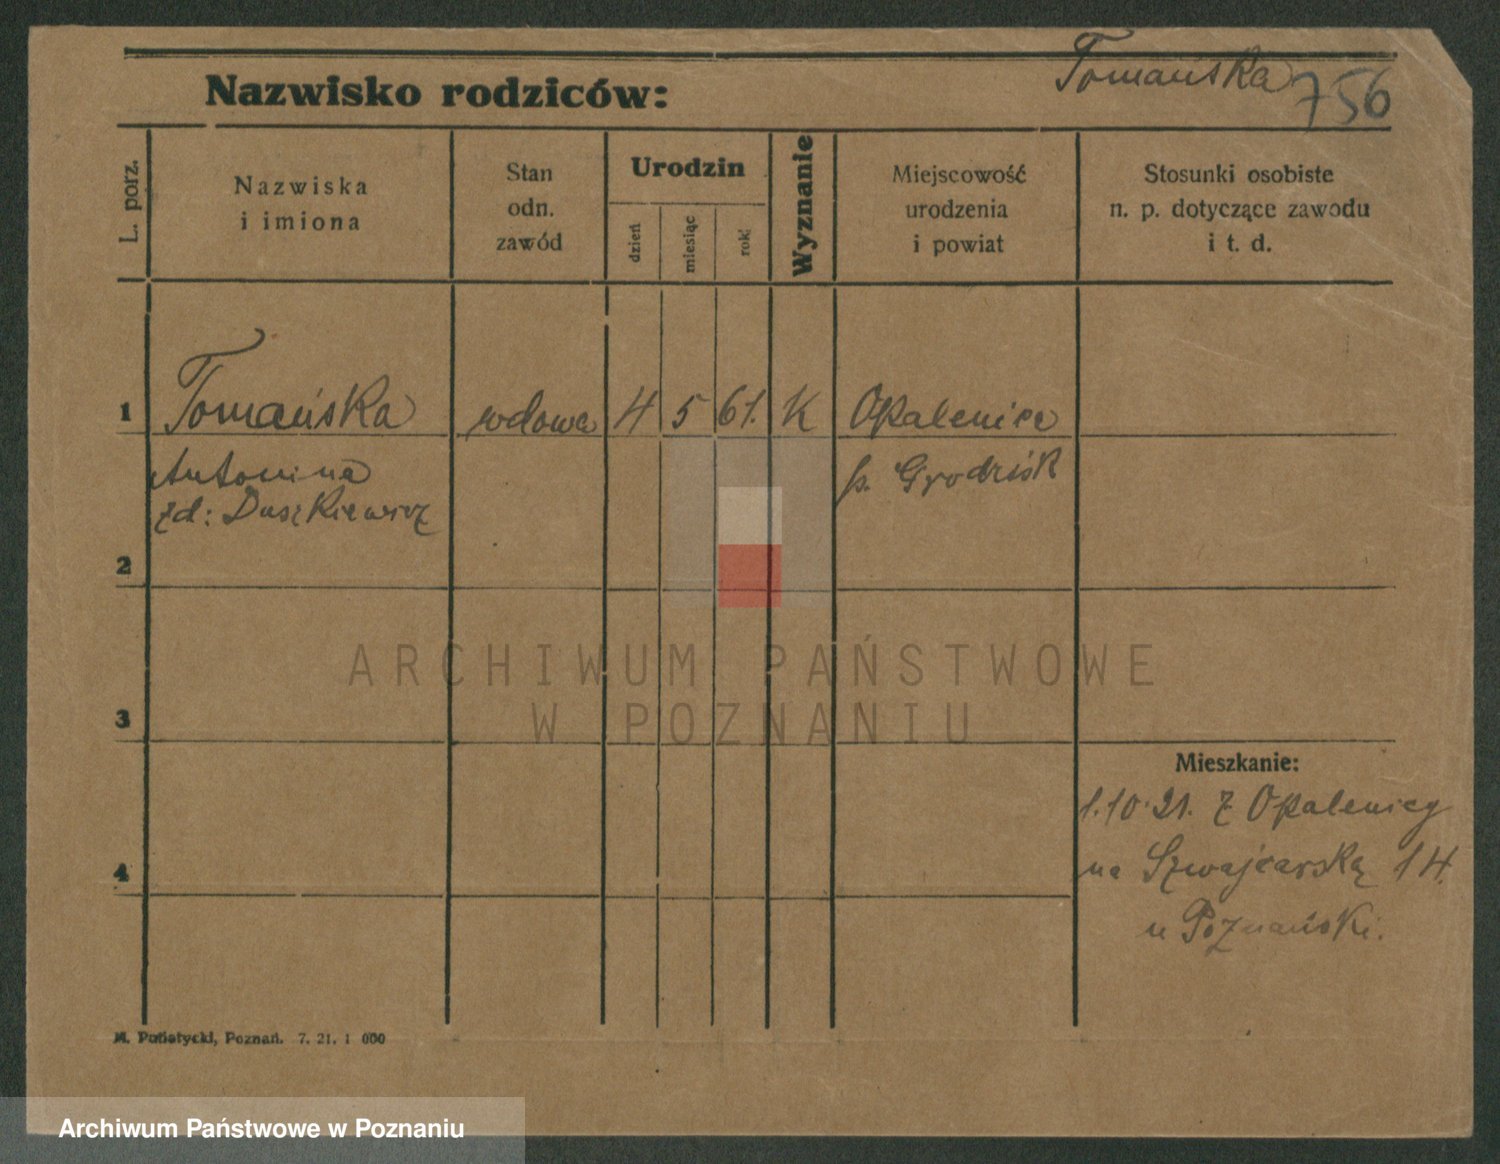 Tomańska 756
Nazwisko rodziców:
L. porz.
Nazwiska
i imiona
Stan
odn.
zawód
Urodzin
dzień
miesiąc
rok
Wyznanie
Miejscowość
urodzenia
i powiat
Stosunki osobiste
n. p. dotyczące zawodu
i t. d.
1 Tomańska wdowa 4 5 61. K Opalenica
Antonina p. Grodzisk
zd: Duszkiewicz
2
3
4
Mieszkanie:
1.10.21. z Opalenicy
na Szwajcarską 14.
u Poznański.
M. Putiatycki, Poznań. 7. 21. 1 000
ARCHIWUM PAŃSTWOWE
W POZNANIU
Archiwum Państwowe w Poznaniu